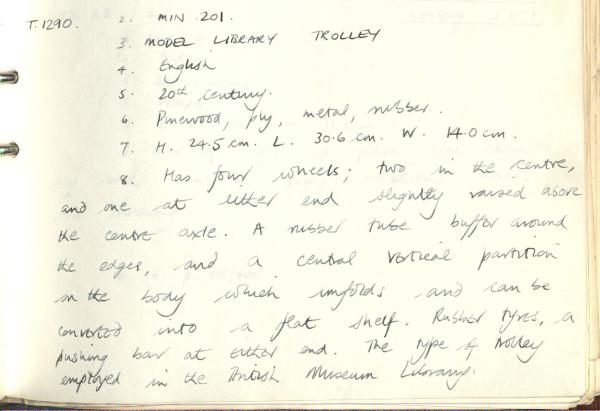 T.1290. 2. MIN 201.
3. MODEL LIBRARY TROLLEY
4. English
5. 20th century.
6. Pinewood, ply, metal, rubber.
7. H. 24.5 cm. L. 30.6 cm. W. 14.0 cm.
8. Has four wheels; two in the centre,
and one at either end slightly raised above
the centre axle. A rubber tube buffer around
the edges, and a central vertical partition
on the body which unfolds and can be
converted into a flat shelf. Rubber tyres, a
pushing bar at either end. The type of trolley
employed in the British Museum Library.